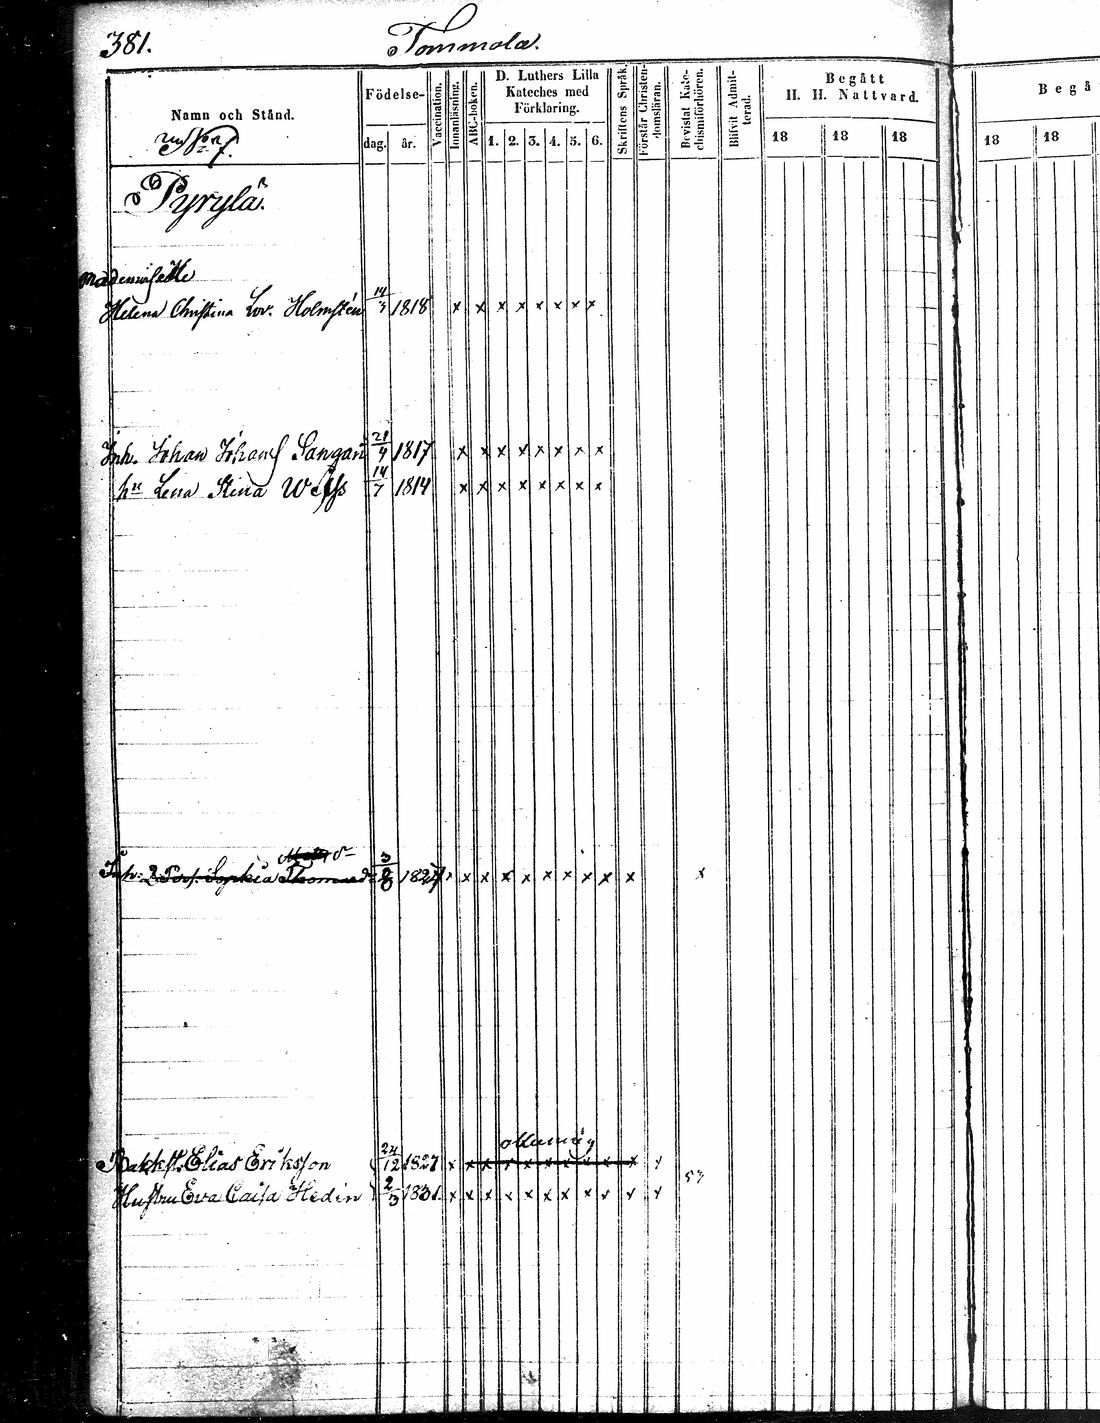 381. Tommola.
Namn och Stånd.
Födelse-
dag. år.
Vaccination.
Innanläsning.
ABC-boken.
D. Luthers Lilla
Kateches med
Förklaring.
1. 2. 3. 4. 5. 6.
Skriftens Språk.
Förstår Christen-
domsläran.
Bevistat Kate-
chismiförhören.
Blifvit Admit-
terad.
Begått
H. H. Nattvard.
18 18 18
Begå
18 18
7.
Pyrylä.
Mademoiselle
Helena Christina Lov. Holmstén 14/3 1818 x x x x x x x x
Inh. Johan Johans 21/4 1817 x x x x x x x x
hu Lena Stina 14/7 1814 x x x x x x x x
Inh: Sophia 3/8 x x x x x x x x x x
Elias Eriksson 24/12 1827 x x x x x x x x x x
Hustru Eva Caisa Hedin 2/3 1831. x x x x x x x x x x x
53